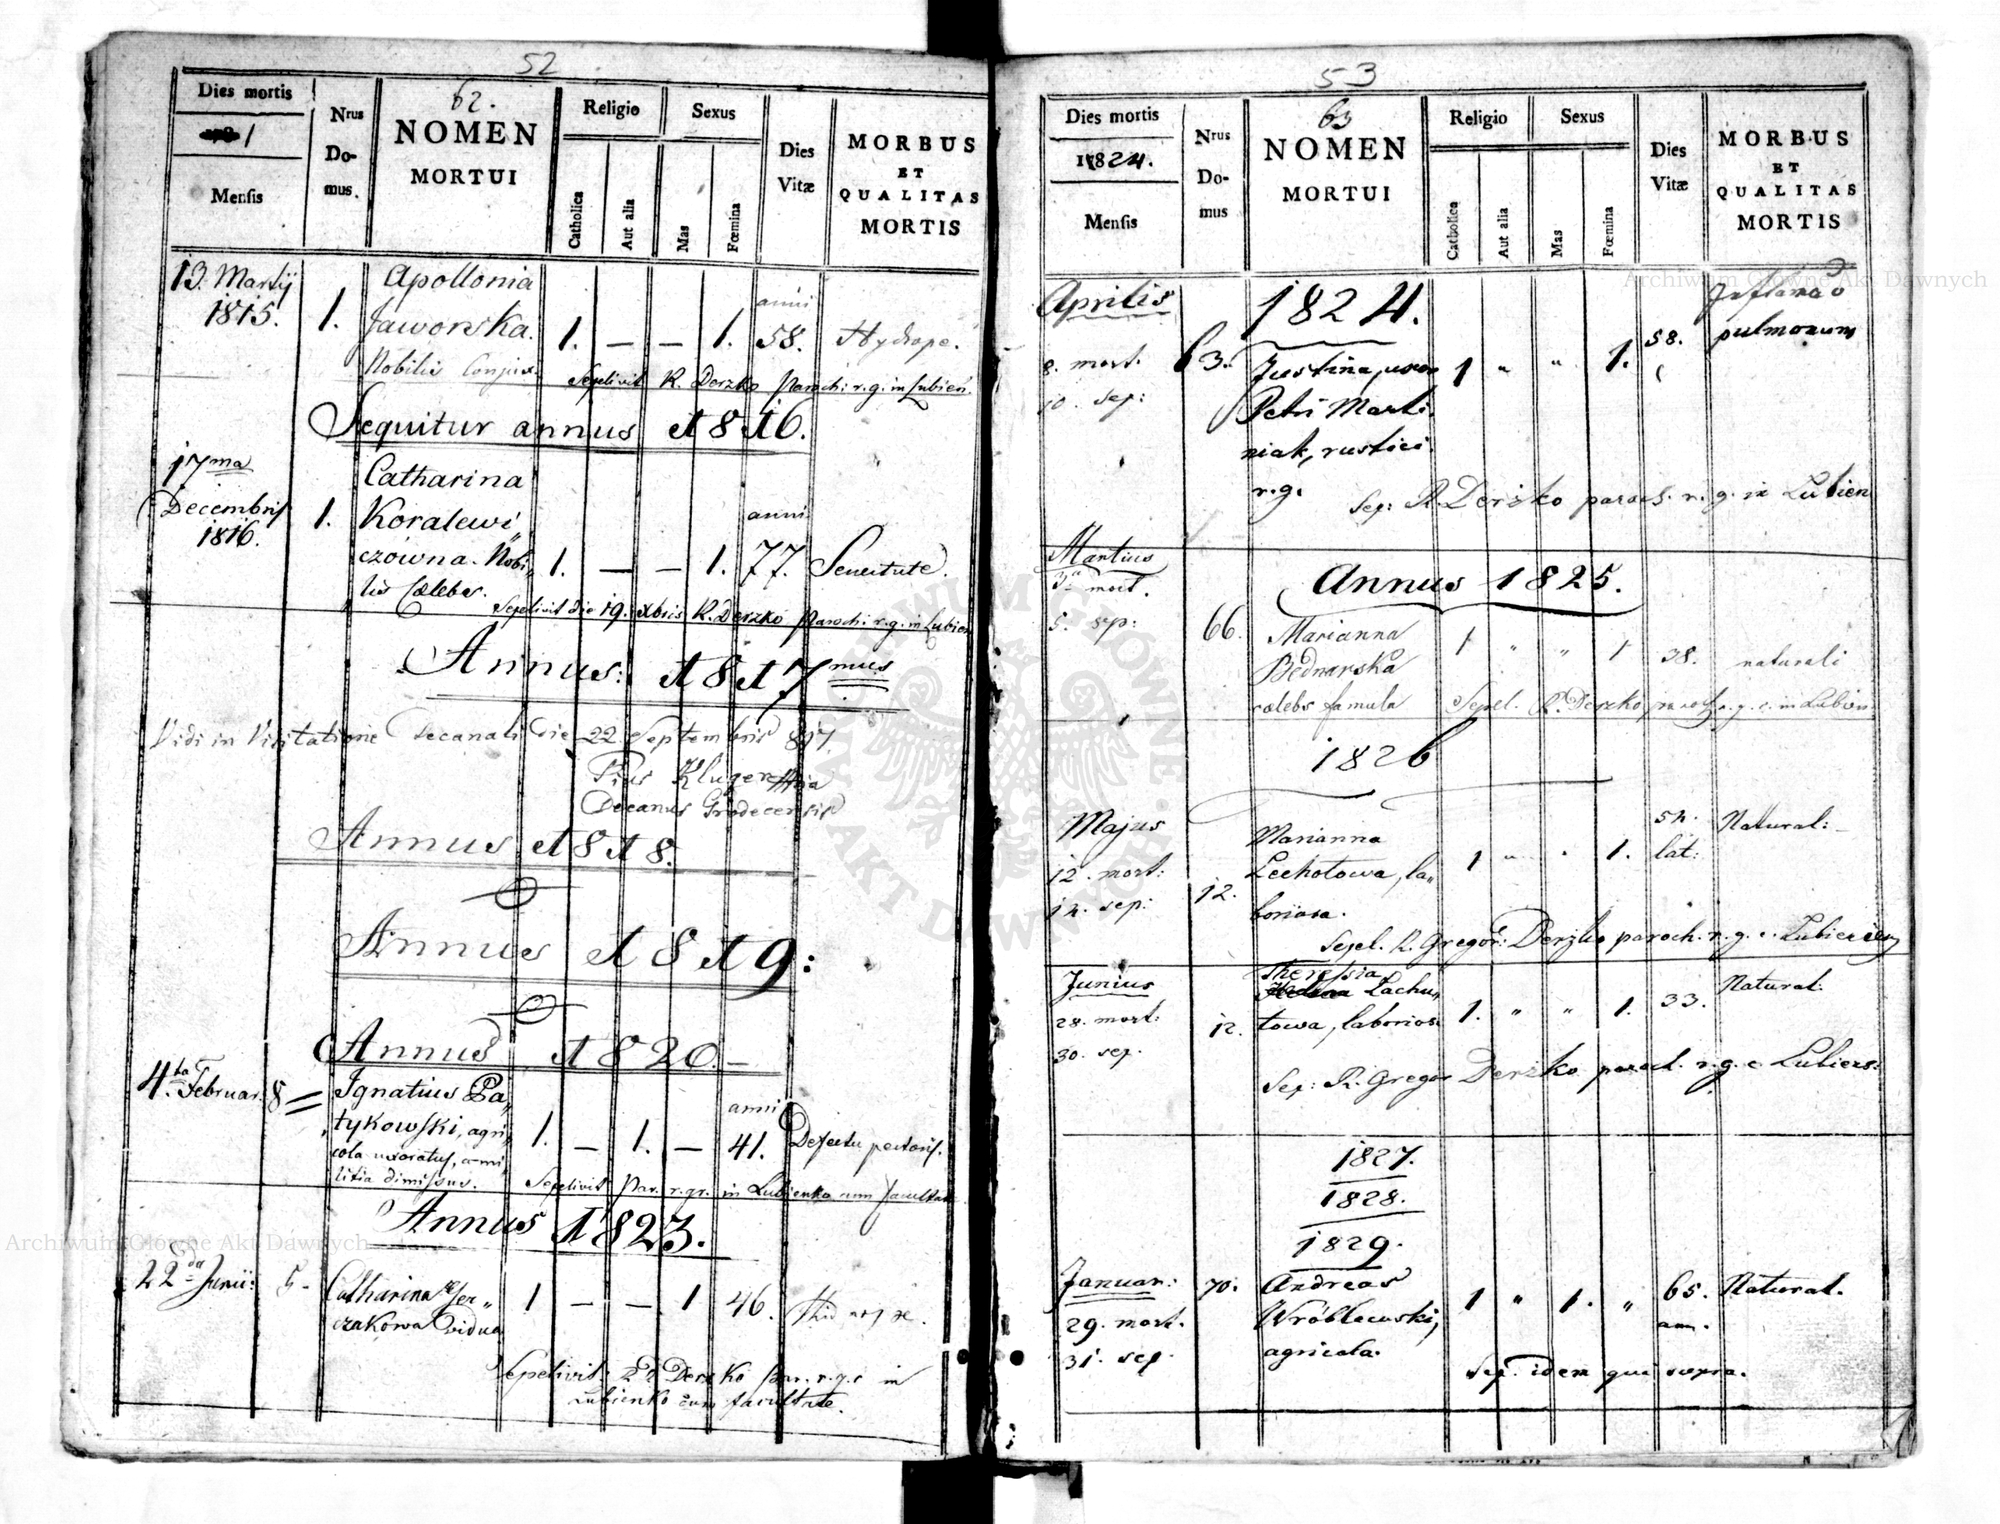 52
62.
Dies mortis
1
Mensis
Nrus
Do-
mus.
NOMEN
MORTUI
Religio
Catholica
Aut alia
Sexus
Mas
Fœmina
Dies
Vitæ
MORBUS
ET
QUALITAS
MORTIS
13. Martij
1815.
1.
Apollonia
Jaworska.
Nobilis Conjux.
1. — — 1.
anni
58.
Hydrope.
Sepelivit R. Derzko Paroch: r. g. in Lubień.
Sequitur annus 1816.
17ma
Decembris
1816.
1.
Catharina
Koralewi„
czowna. Nobi„
lis Cælebs.
1. — — 1.
anni
77.
Senectute.
Sepelivit die 19. Xbris R. Derzko Paroch: r. g. in Lubień
Annus: 1817mus
Vidi in Visitatione Decanali die 22 Septembris 817.
Pius Kluger
Decanus Grodecensis
Annus 1818.
Annus 1819:
Annus 1820.—
4ta Februar.
8
Ignatius Pa„
tykowski, agri„
cola uxoratus, a mi„
litia dimissus.
1. — 1. —
anni
41.
Defectu pectoris.
Sepelivit Par. r. gr. in Lubienko cum facultate.
Annus 1823.
22da Junii:
5 -
Catharina
czakowa vidua
1 — — 1
46.
Sepelivit Derzko Par. r. g. c in
Lubienko cum facultate.
53
63
Dies mortis
1824.
Mensis
Nrus
Do-
mus
NOMEN
MORTUI
Religio
Catholica
Aut alia
Sexus
Mas
Fœmina
Dies
Vitæ
MORBUS
ET
QUALITAS
MORTIS
Aprilis
8. mort.
10. sep:
63.
1824.
Justina, uxor
Petri Marti„
niak, rustici.
r. g.
1 „ „ 1.
58.
pulmonum
Sep: R. Derzko paroch. r. g. in Lubien
Martius
3. mort.
5. sep:
66.
Annus 1825.
Marianna
Bednarska
cælebs famula
1 „ „ 1
38.
naturali
Sepel. R. Derzko, paroch. r. g. c. in Lubien
1826
Majus
12. mort:
14. sep:
12.
Marianna
Lechotowa, la„
boriosa.
1 „ „ 1.
54.
lat:
Natural:
Sepel. R. Gregor: Derzko paroch. r. g. c. Lubiensis
Junius
28. mort:
30. sep.
12.
Theressia
Lachu„
towa, laborios:
1. „ „ 1.
33.
Natural:
Sep: R. Gregor Derzko paroch. r. g. c. Lubiens:
1827.
1828.
1829.
Januar:
29. mort.
31. sep.
70.
Andreas
Wróblewski,
agricola.
1 „ 1. „
65.
ann.
Natural.
Sep. idem qui supra.
Archiwum Główne Akt Dawnych
Archiwum Główne Akt Dawnych
ARCHIWUM GŁÓWNE AKT DAWNYCH